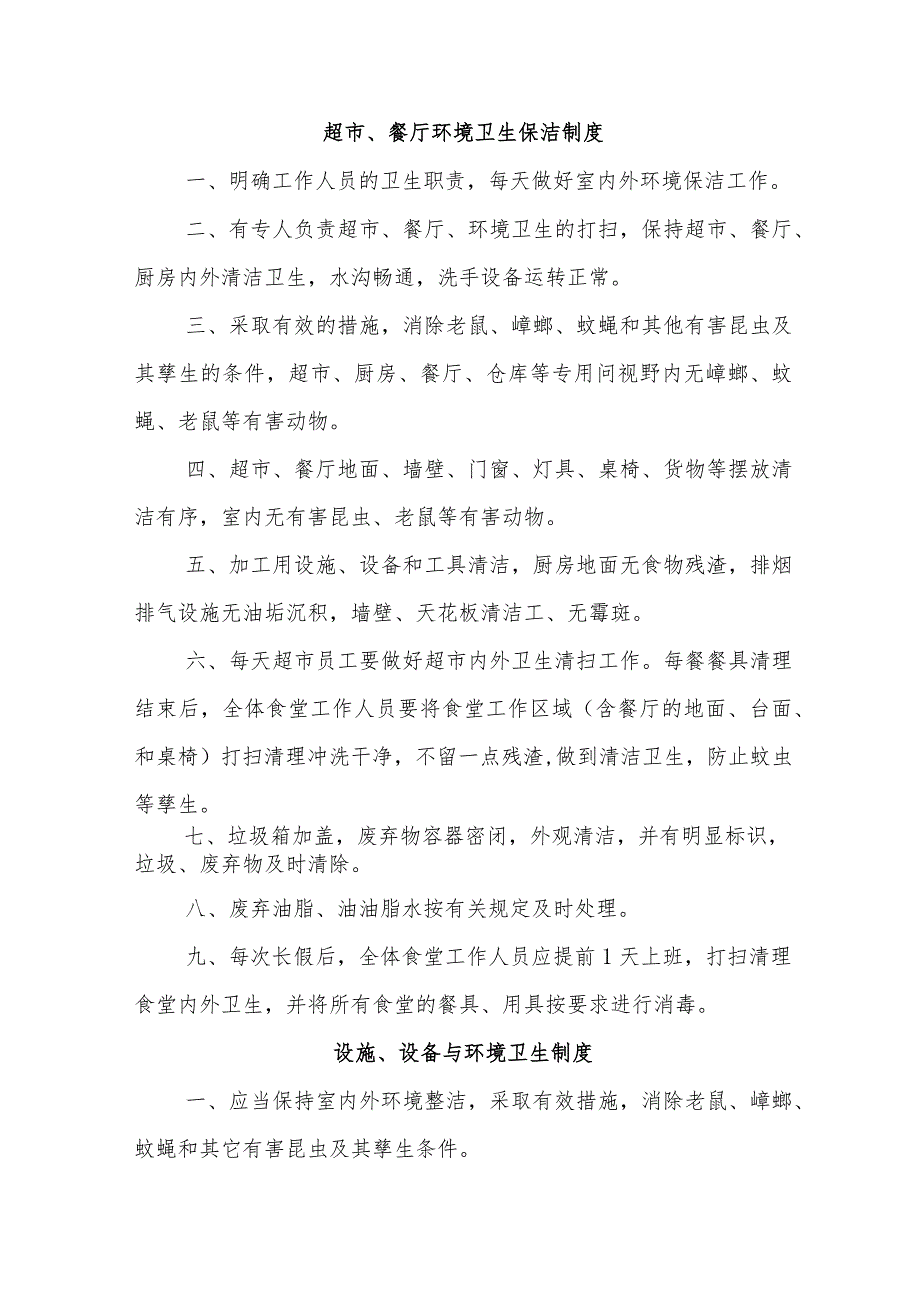 超市、餐厅环境卫生保洁制度
一、明确工作人员的卫生职责，每天做好室内外环境保洁工作。
二、有专人负责超市、餐厅、环境卫生的打扫，保持超市、餐厅、
厨房内外清洁卫生，水沟畅通，洗手设备运转正常。
三、采取有效的措施，消除老鼠、嶂螂、蚊蝇和其他有害昆虫及
其孳生的条件，超市、厨房、餐厅、仓库等专用问视野内无嶂螂、蚊
蝇、老鼠等有害动物。
四、超市、餐厅地面、墙壁、门窗、灯具、桌椅、货物等摆放清
洁有序，室内无有害昆虫、老鼠等有害动物。
五、加工用设施、设备和工具清洁，厨房地面无食物残渣，排烟
排气设施无油垢沉积，墙壁、天花板清洁工、无霉斑。
六、每天超市员工要做好超市内外卫生清扫工作。每餐餐具清理
结束后，全体食堂工作人员要将食堂工作区域（含餐厅的地面、台面、
和桌椅）打扫清理冲洗干净，不留一点残渣,做到清洁卫生，防止蚊虫
等孳生。
七、垃圾箱加盖，废弃物容器密闭，外观清洁，并有明显标识，
垃圾、废弃物及时清除。
八、废弃油脂、油油脂水按有关规定及时处理。
九、每次长假后，全体食堂工作人员应提前1天上班，打扫清理
食堂内外卫生，并将所有食堂的餐具、用具按要求进行消毒。
设施、设备与环境卫生制度
一、应当保持室内外环境整洁，采取有效措施，消除老鼠、嶂螂、
蚊蝇和其它有害昆虫及其孳生条件。